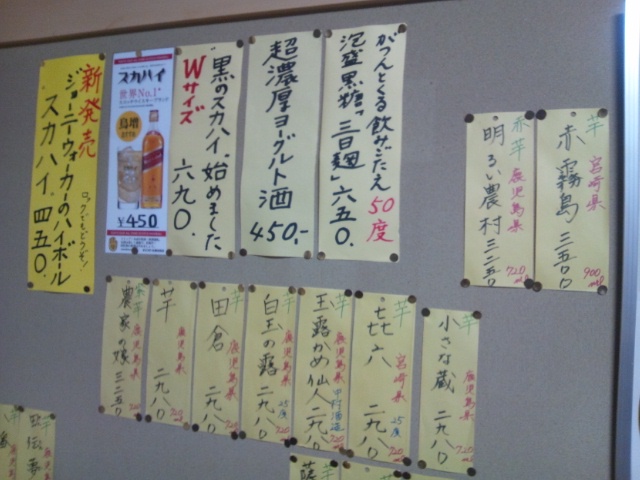 がつんとくる飲みごたえ 50度
泡盛黒糖「三日麹」六五〇.
超濃厚ヨーグルト酒
450,-
"黒のスカハイ"始めました
Wサイズ 六九〇.
スカハイ
世界No.1
¥450
新発売
ロックでもどうぞ!
ジョニーウォーカーのハイボール
スカハイ. 四五〇.
芋 宮崎県
赤霧島 三五〇〇
900ml
赤芋 鹿児島県
明るい農村 三二五〇
720ml
芋 鹿児島県
小さな蔵 二九八〇
720ml
芋 宮崎県
㐂六 二九八〇
25度 720
芋 鹿児島県 中村酒造
玉露かめ仙人 二九八〇
720
芋 鹿児島県
白玉の露 二九八〇
25度 720
芋 鹿児島県
田倉 二九八〇
720
鹿児島県
芋 二九八〇
720
鹿児島県
農家の嫁 三二五〇
720
芋